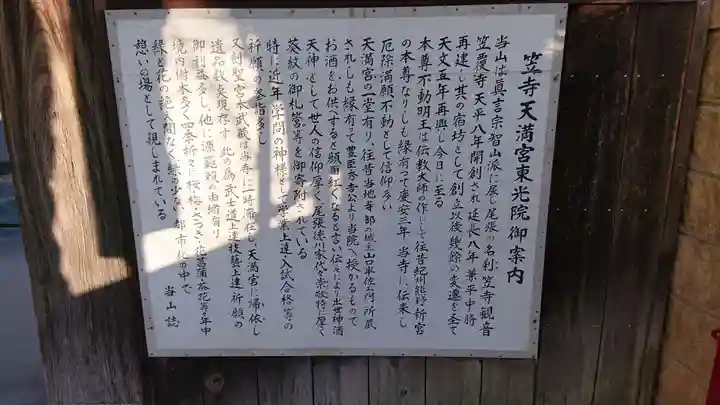 笠寺天満宮東光院御案内
当山は真言宗智山派に属し尾張の名刹笠寺観音
笠覆寺 天平八年開創され延長八年 兼平中将
再建し其の宿坊として創立以後幾餘の変遷を全て
天文五年再興し今日に至る
本尊不動明王は伝教大師の作にして往昔紀州熊野新宮
の本尊なりしも縁有って慶安三年 当寺に伝来し
厄除満願不動として信仰多い
天満宮の一堂有り往昔当地寺部の城主山口半左ヱ門の所蔵
されしも縁有って豊臣秀吉公より当院へ授かるものて
お酒をお供すると顔面紅くなると言い伝えにより出世神酒
天神として世人の信仰厚く尾張徳川家代々崇敬特に厚く
葵紋の御札箱等を御寄附されている
特に近年 学問の神様として学業上達入試合格等の
祈願の参詣多し
又剣聖宮本武蔵は当寺に一時滞在し天満宮に帰依し
遺品数点現存す 此の為武士道上達技藝上達祈願の
御利益多し他に源頼朝の由緒有り
境内樹木多く四季折々に桜梅さつき花菖蒲茶花等年中
緑と花の絶え間なく緑の少ない都市化の中で
憩いの場として親しまれている
当山誌